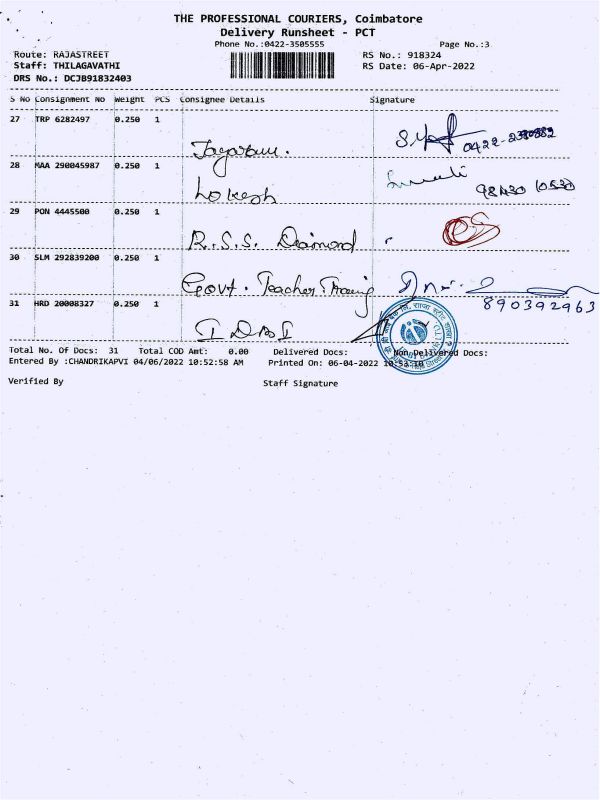 THE PROFESSIONAL COURIERS, Coimbatore
Delivery Runsheet - PCT
Phone No.:0422-3505555 Page No.:3
Route: RAJASTREET RS No.: 918324
Staff: THILAGAVATHI RS Date: 06-Apr-2022
DRS No.: DCJB91832403
S No Consignment No Weight PCS Consignee Details Signature
27 TRP 6282497 0.250 1
Jayaram. 0422-2390882
28 MAA 290045987 0.250 1
Lokesh 98430 10530
29 PON 4445500 0.250 1
R.S.S. Diamond
30 SLM 292839200 0.250 1
Govt. Teacher Traing
890392963
31 HRD 20008327 0.250 1
IDBI
Total No. Of Docs: 31 Total COD Amt: 0.00 Delivered Docs: Non Delivered Docs:
Entered By :CHANDRIKAPVI 04/06/2022 10:52:58 AM Printed On: 06-04-2022 10:53:10
Verified By Staff Signature